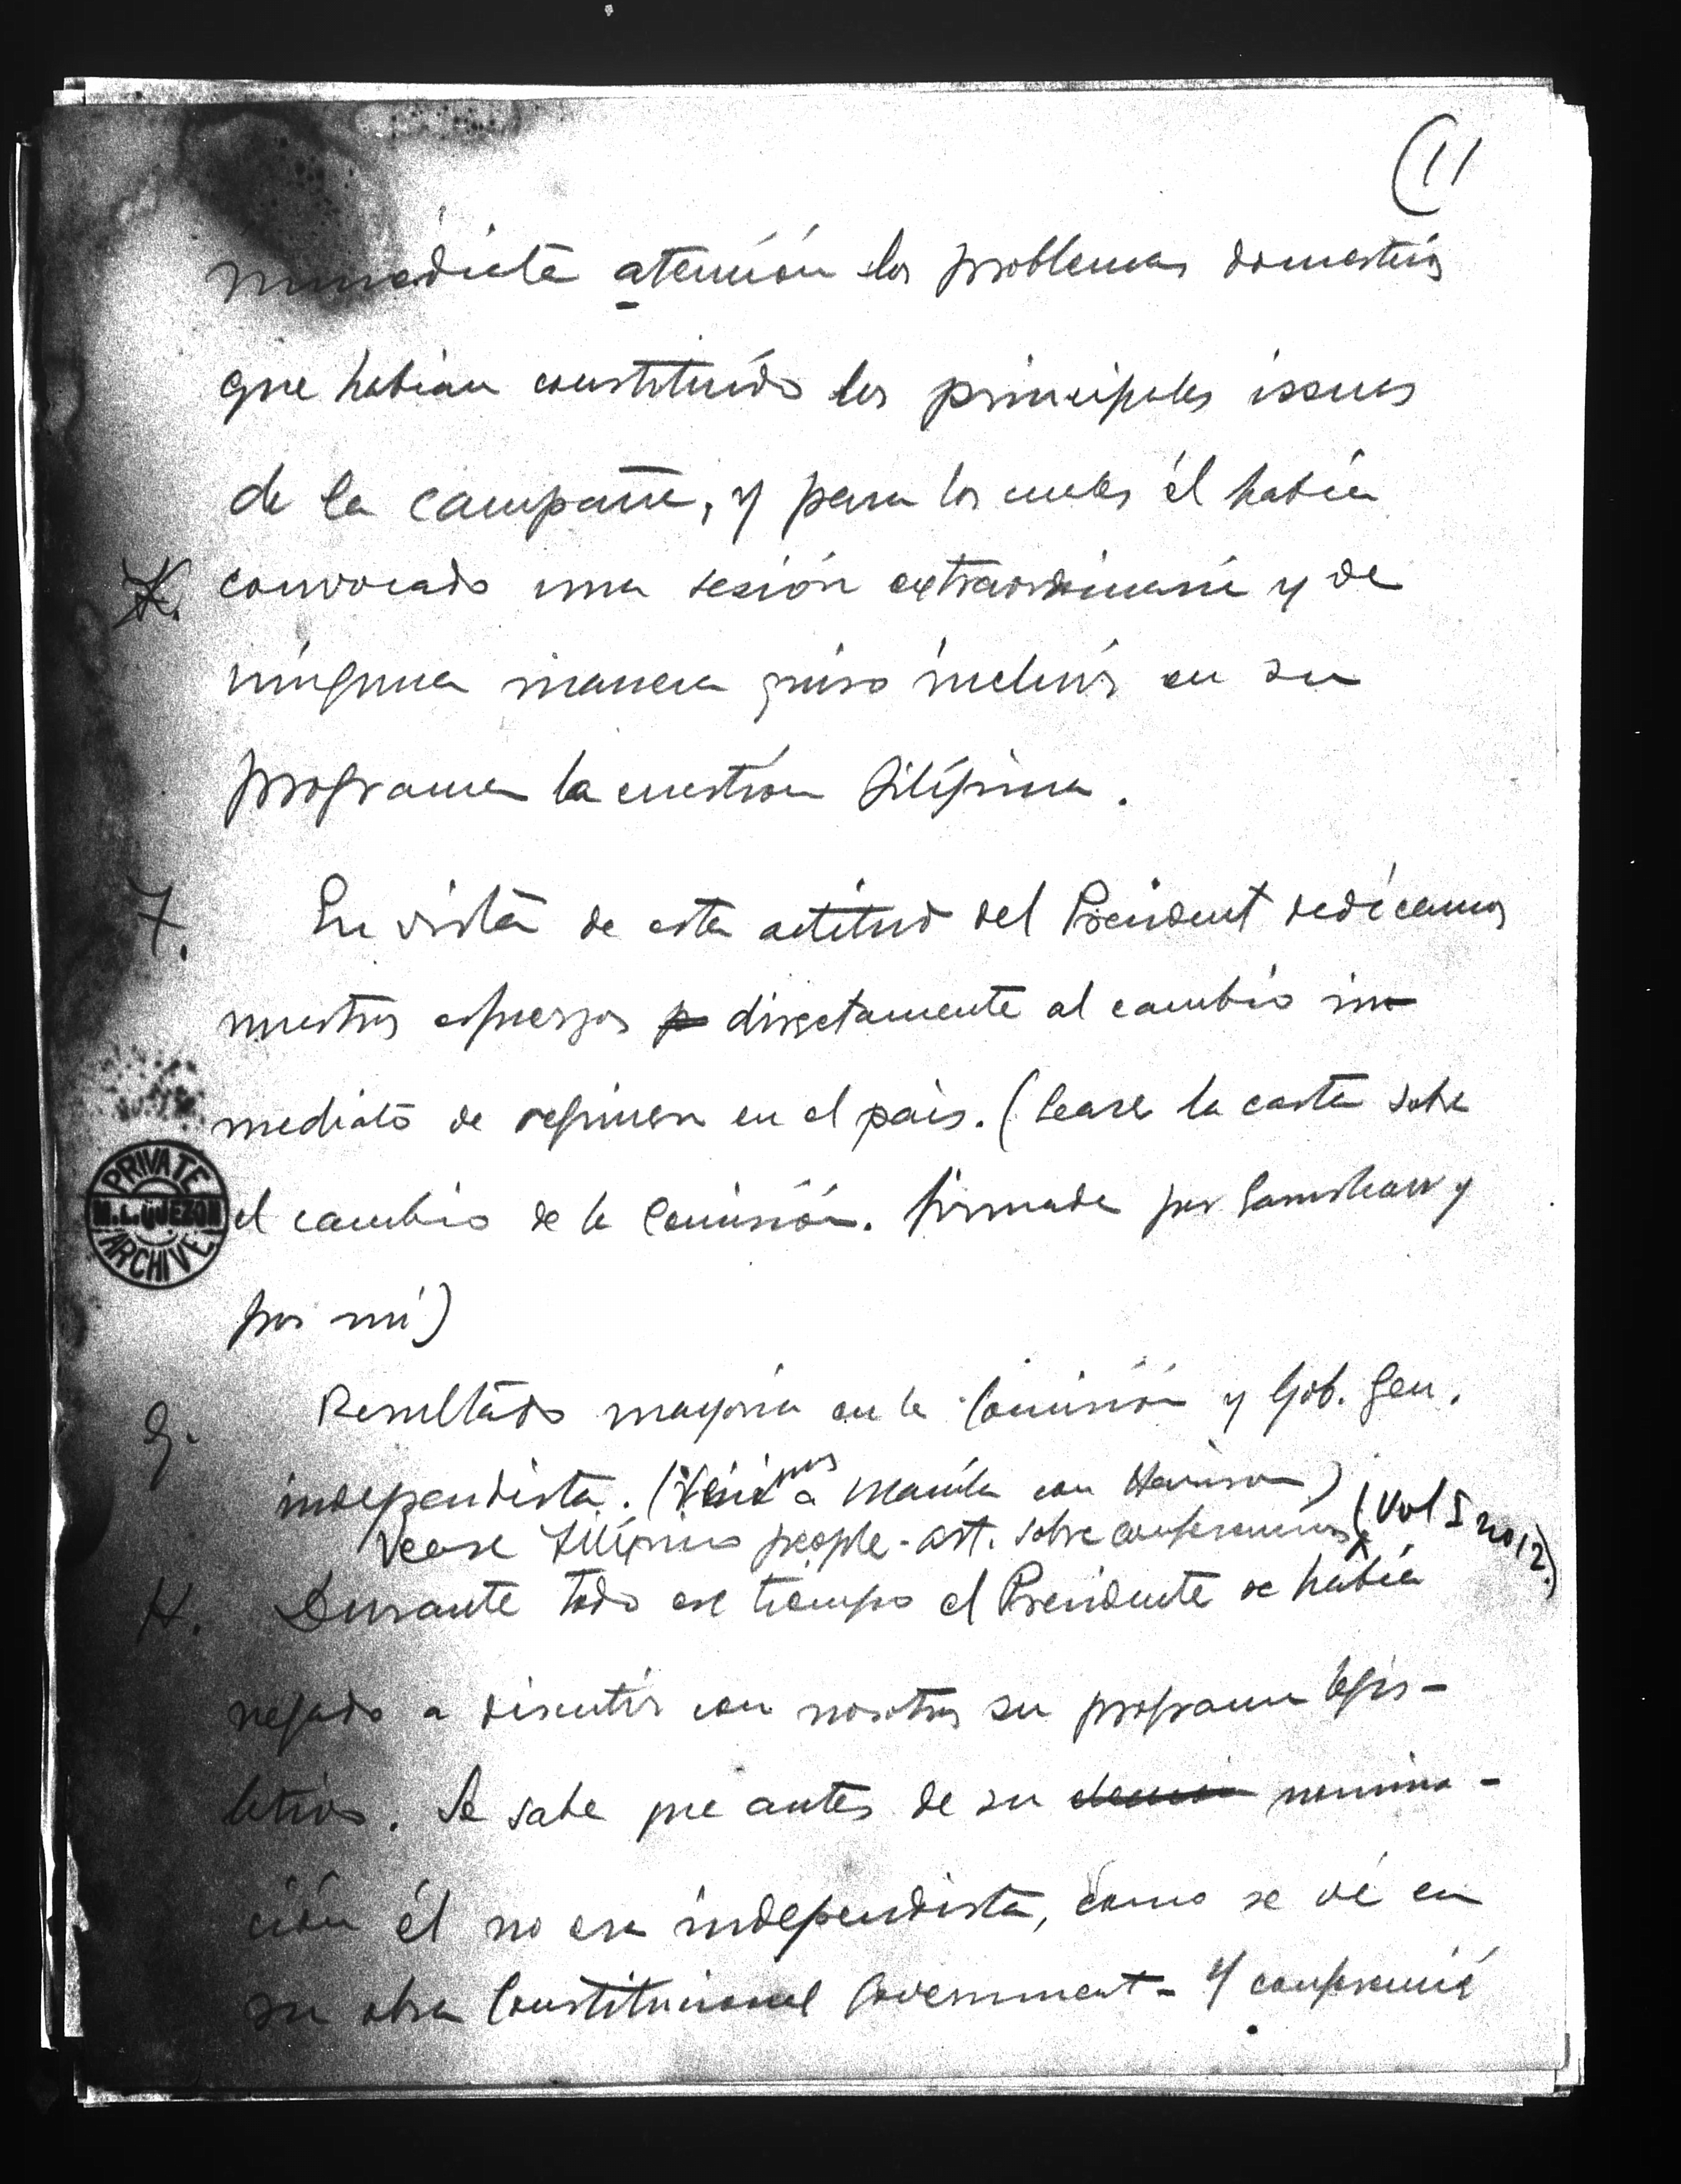 (11
inmediata atención los problemas domesticos
que habian constituído los principales issues
de la campaña, y para los cuales él había
K. convocado una sesión extraordinaria y de
ninguna manera quiso incluir en su
programa la cuestion filipina.
7. En vista de esta actitud del President dedicamos
nuestros esfuerzos directamente al cambio in-
mediato de regimen en el pais. (Lease la carta sobre
PRIVATE
M. L. QUEZON
ARCHIVE
el cambio de la Comisión. firmada por y
por mí)
G. Resultado mayoria en la Comisión y Gob. Gen.
independista. (Venimos a Manila con Harrison)
Vease Filipino people - art. sobre conferencias (Vol I no 12.)
H. Durante todo ese tiempo el Presidente se había
negado a discutir con nosotros su programa legis-
lativo. Se sabe que antes de su eleccion nomina-
ción él no era independista, como se vé en
su obra Constitucional Government - Y conferencié